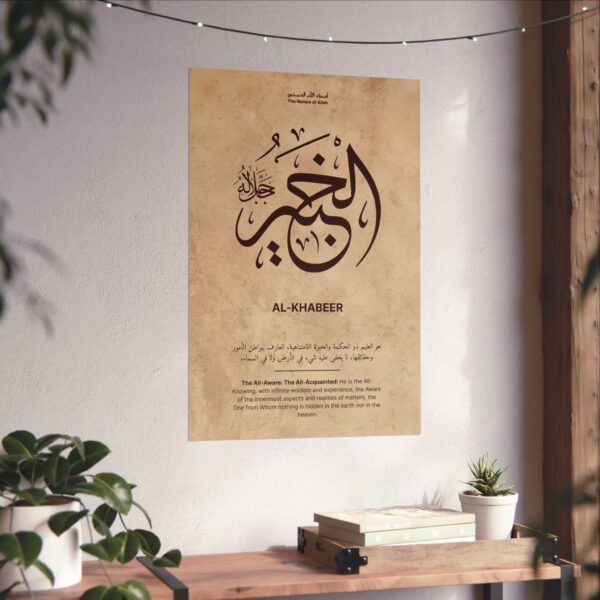 أسماء الله الحسنى
The Names of Allah
الخبير
جل جلاله
AL-KHABEER
هو العليم ذو الحكمة والخبرة اللامتناهية، العارف ببواطن الأمور
وحقائقها، لا يخفى عليه شيء في الأرض ولا في السماء.
The All-Aware: The All-Acquainted: He is the All-
Knowing, with infinite wisdom and experience, the Aware
of the innermost aspects and realities of matters, the
One from Whom nothing is hidden in the earth nor in the
heaven.